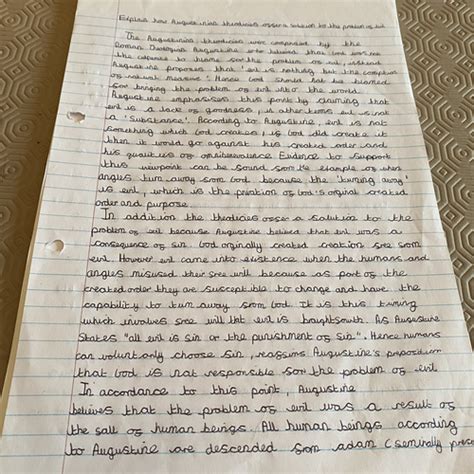 Explain how Augustinian theodicies offer a solution to the problem of evil
The Augustinian theodicies were composed by the
Roman Augustine who believed that God was not
the to blame for the problem of evil, instead
Augustine proposes that 'evil is nothing but the corruption
of natural measure'. Hence God should not be blamed
for bringing the problem of evil into the world.
Augustine emphasises this point by claiming that
evil is a lack of goodness, in other terms evil is not
a 'Substance'. According to Augustine, evil is not
something which God created, if God did create it
then it would go against his created order and
his qualities of omnibenevolence. Evidence to support
this viewpoint can be found from the example of when
angles turn away from God because the 'turning away'
is evil, which is the privation of God's original created
order and purpose.
In addition the theodicies offer a solution to the
problem of evil because Augustine believed that evil was a
consequence of sin. God originally created creation free from
evil. However evil came into existence when the humans and
angles misused their free will because as part of the
created order they are susceptible to change and have the
capability to turn away from God. It is this turning
which involves free will that evil is brought forth. As Augustine
States "all evil is sin or the punishment of sin". Hence humans
can choose sin, Augustine's proposition
that God is not responsible for the problem of evil
In accordance to this point, Augustine
believes that the problem of evil was a result of
the fall of human beings. All human beings according
to Augustine are descended from adam (seminally